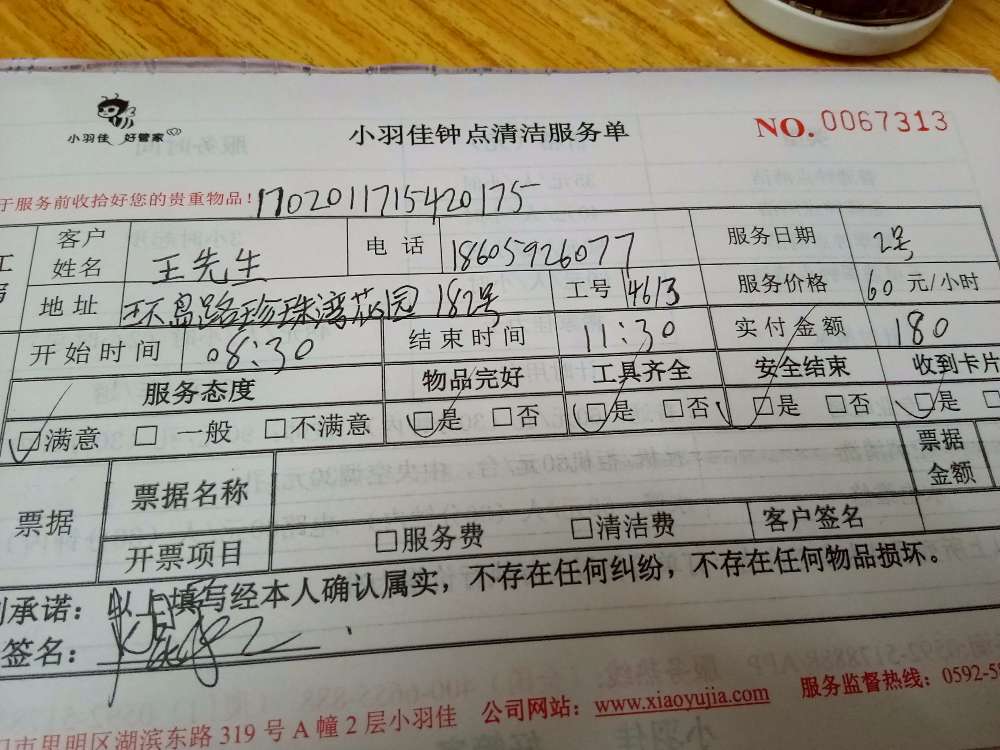 小羽佳 好管家
小羽佳钟点清洁服务单
NO. 0067313
于服务前收拾好您的贵重物品！
1702011715420175
客户姓名 王先生 电话 18605926077 服务日期 2号
地址 环岛路珍珠湾花园 182号 工号 4613 服务价格 60 元/小时
开始时间 08:30 结束时间 11:30 实付金额 180
服务态度 物品完好 工具齐全 安全结束 收到卡片
☑满意 □ 一般 □不满意 ☑是 □否 ☑是 □否 ☑是 □否 ☑是
票据 票据名称 票据金额
开票项目 □服务费 □清洁费 客户签名
承诺：以上填写经本人确认属实，不存在任何纠纷，不存在任何物品损坏。
签名：
门市思明区湖滨东路 319 号 A 幢 2 层小羽佳 公司网站：www.xiaoyujia.com 服务监督热线：0592-5